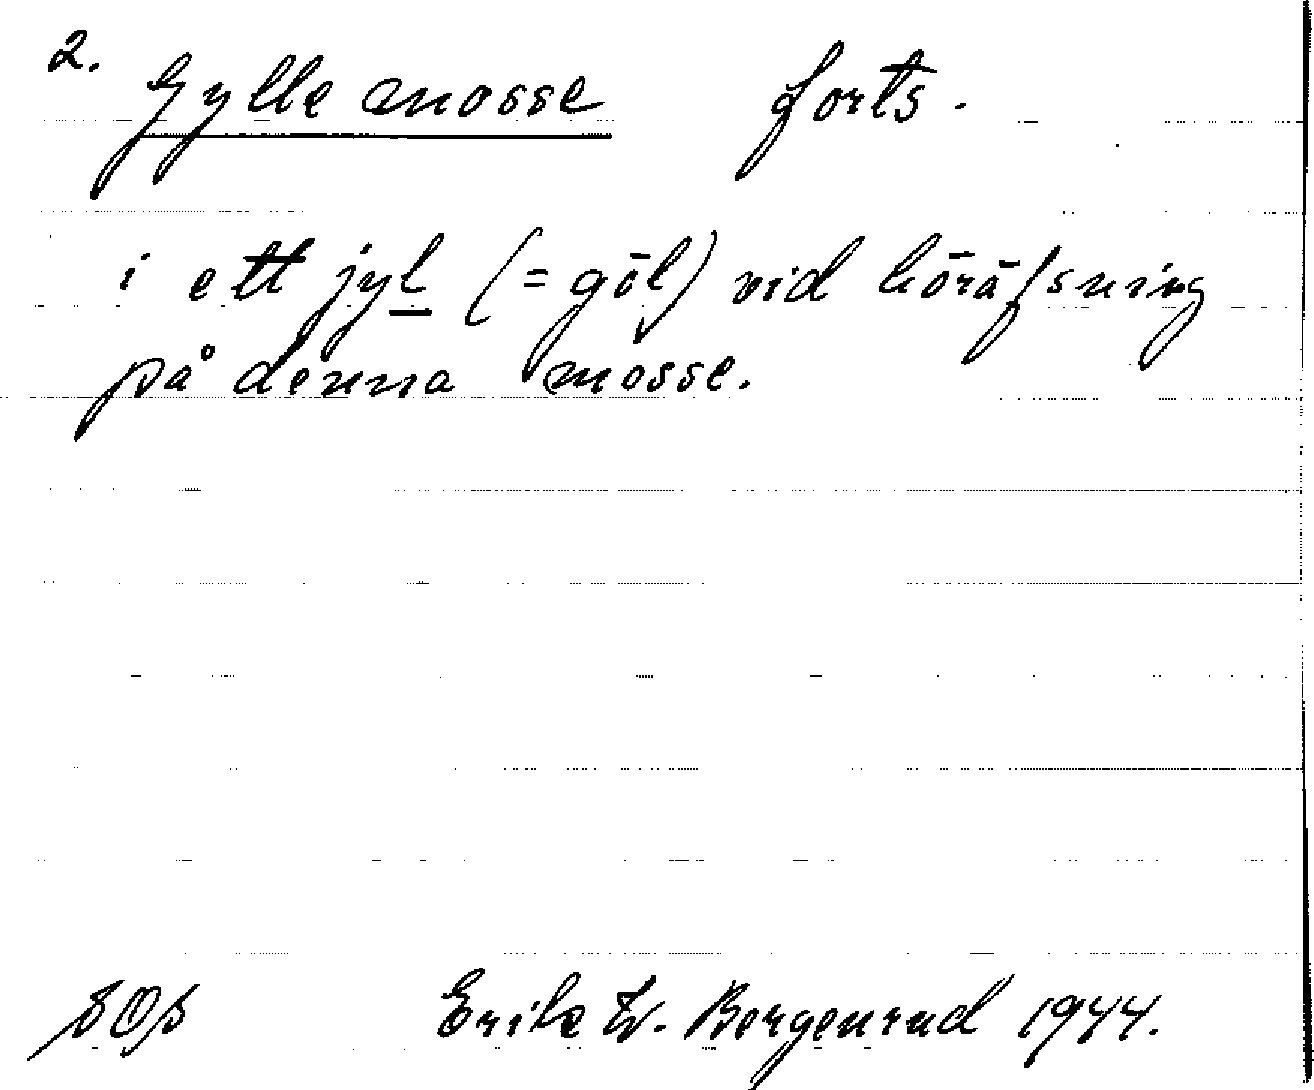 2. Gylle mosse forts.
i ett jyl (= göl) vid höräfsning
på denna mosse.
SOS Erik Tr. Bergenrud 1944.